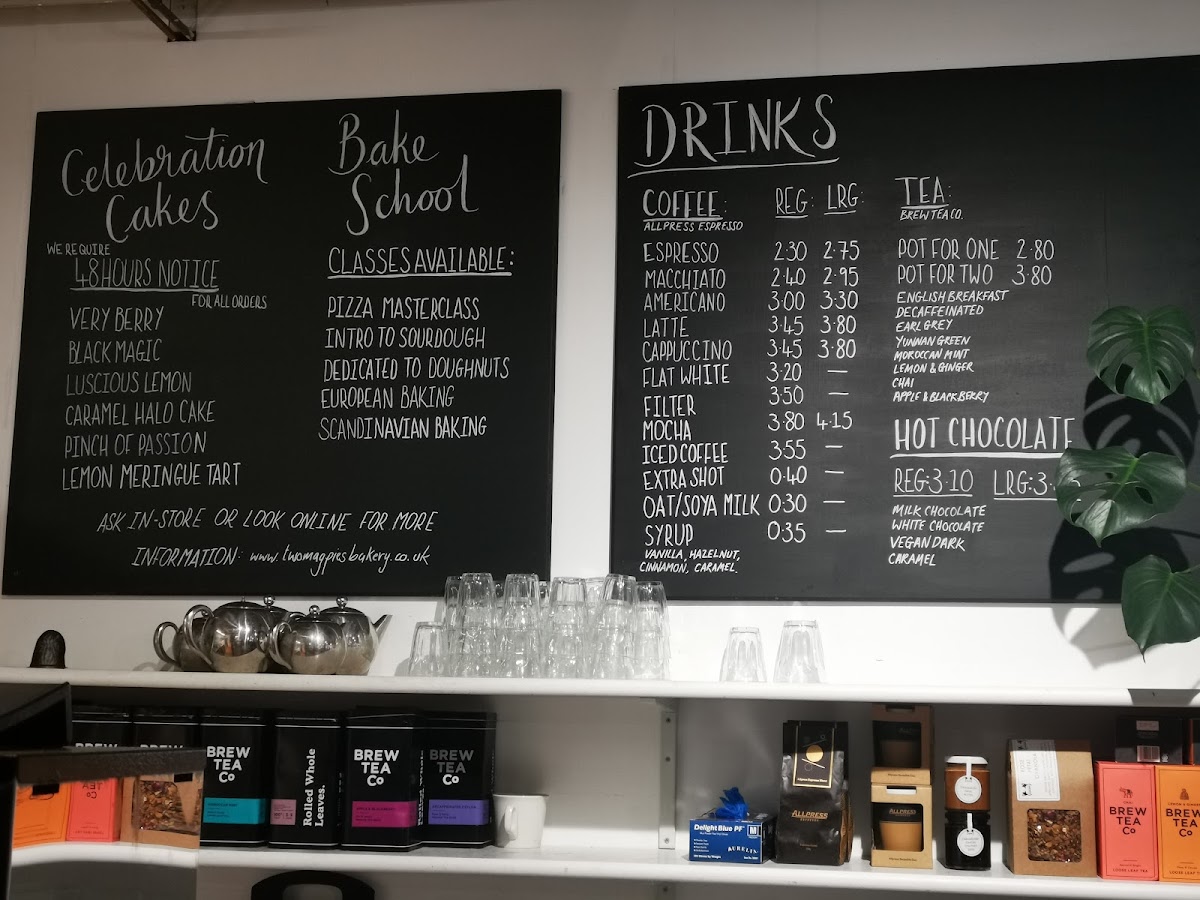 Celebration
Cakes
WE REQUIRE
48 HOURS NOTICE
FOR ALL ORDERS
VERY BERRY
BLACK MAGIC
LUSCIOUS LEMON
CARAMEL HALO CAKE
PINCH OF PASSION
LEMON MERINGUE TART
Bake
School
CLASSES AVAILABLE:
PIZZA MASTERCLASS
INTRO TO SOURDOUGH
DEDICATED TO DOUGHNUTS
EUROPEAN BAKING
SCANDINAVIAN BAKING
ASK IN-STORE OR LOOK ONLINE FOR MORE
INFORMATION: www.twomagpiesbakery.co.uk
DRINKS
COFFEE: REG: LRG:
ALLPRESS ESPRESSO
ESPRESSO 2·30 2·75
MACCHIATO 2·40 2·95
AMERICANO 3·00 3·30
LATTE 3·45 3·80
CAPPUCCINO 3·45 3·80
FLAT WHITE 3·20 —
FILTER 3·50 —
MOCHA 3·80 4·15
ICED COFFEE 3·55 —
EXTRA SHOT 0·40 —
OAT/SOYA MILK 0·30 —
SYRUP 0·35 —
VANILLA, HAZELNUT,
CINNAMON, CARAMEL.
TEA:
BREW TEA CO.
POT FOR ONE 2·80
POT FOR TWO 3·80
ENGLISH BREAKFAST
DECAFFEINATED
EARL GREY
YUNNAN GREEN
MOROCCAN MINT
LEMON & GINGER
CHAI
APPLE & BLACKBERRY
HOT CHOCOLATE
REG:3·10 LRG:3·
MILK CHOCOLATE
WHITE CHOCOLATE
VEGAN DARK
CARAMEL
BREW
TEA
Co
Rolled Whole
Leaves.
BREW
TEA
Co
BREW
TEA
Co
Delight Blue PF
M
AURELIA
ALLPRESS
ALLPRESS
BREW
TEA
Co
LOOSE LEAF TEA
BREW
TEA
Co
LOOSE LEAF TEA